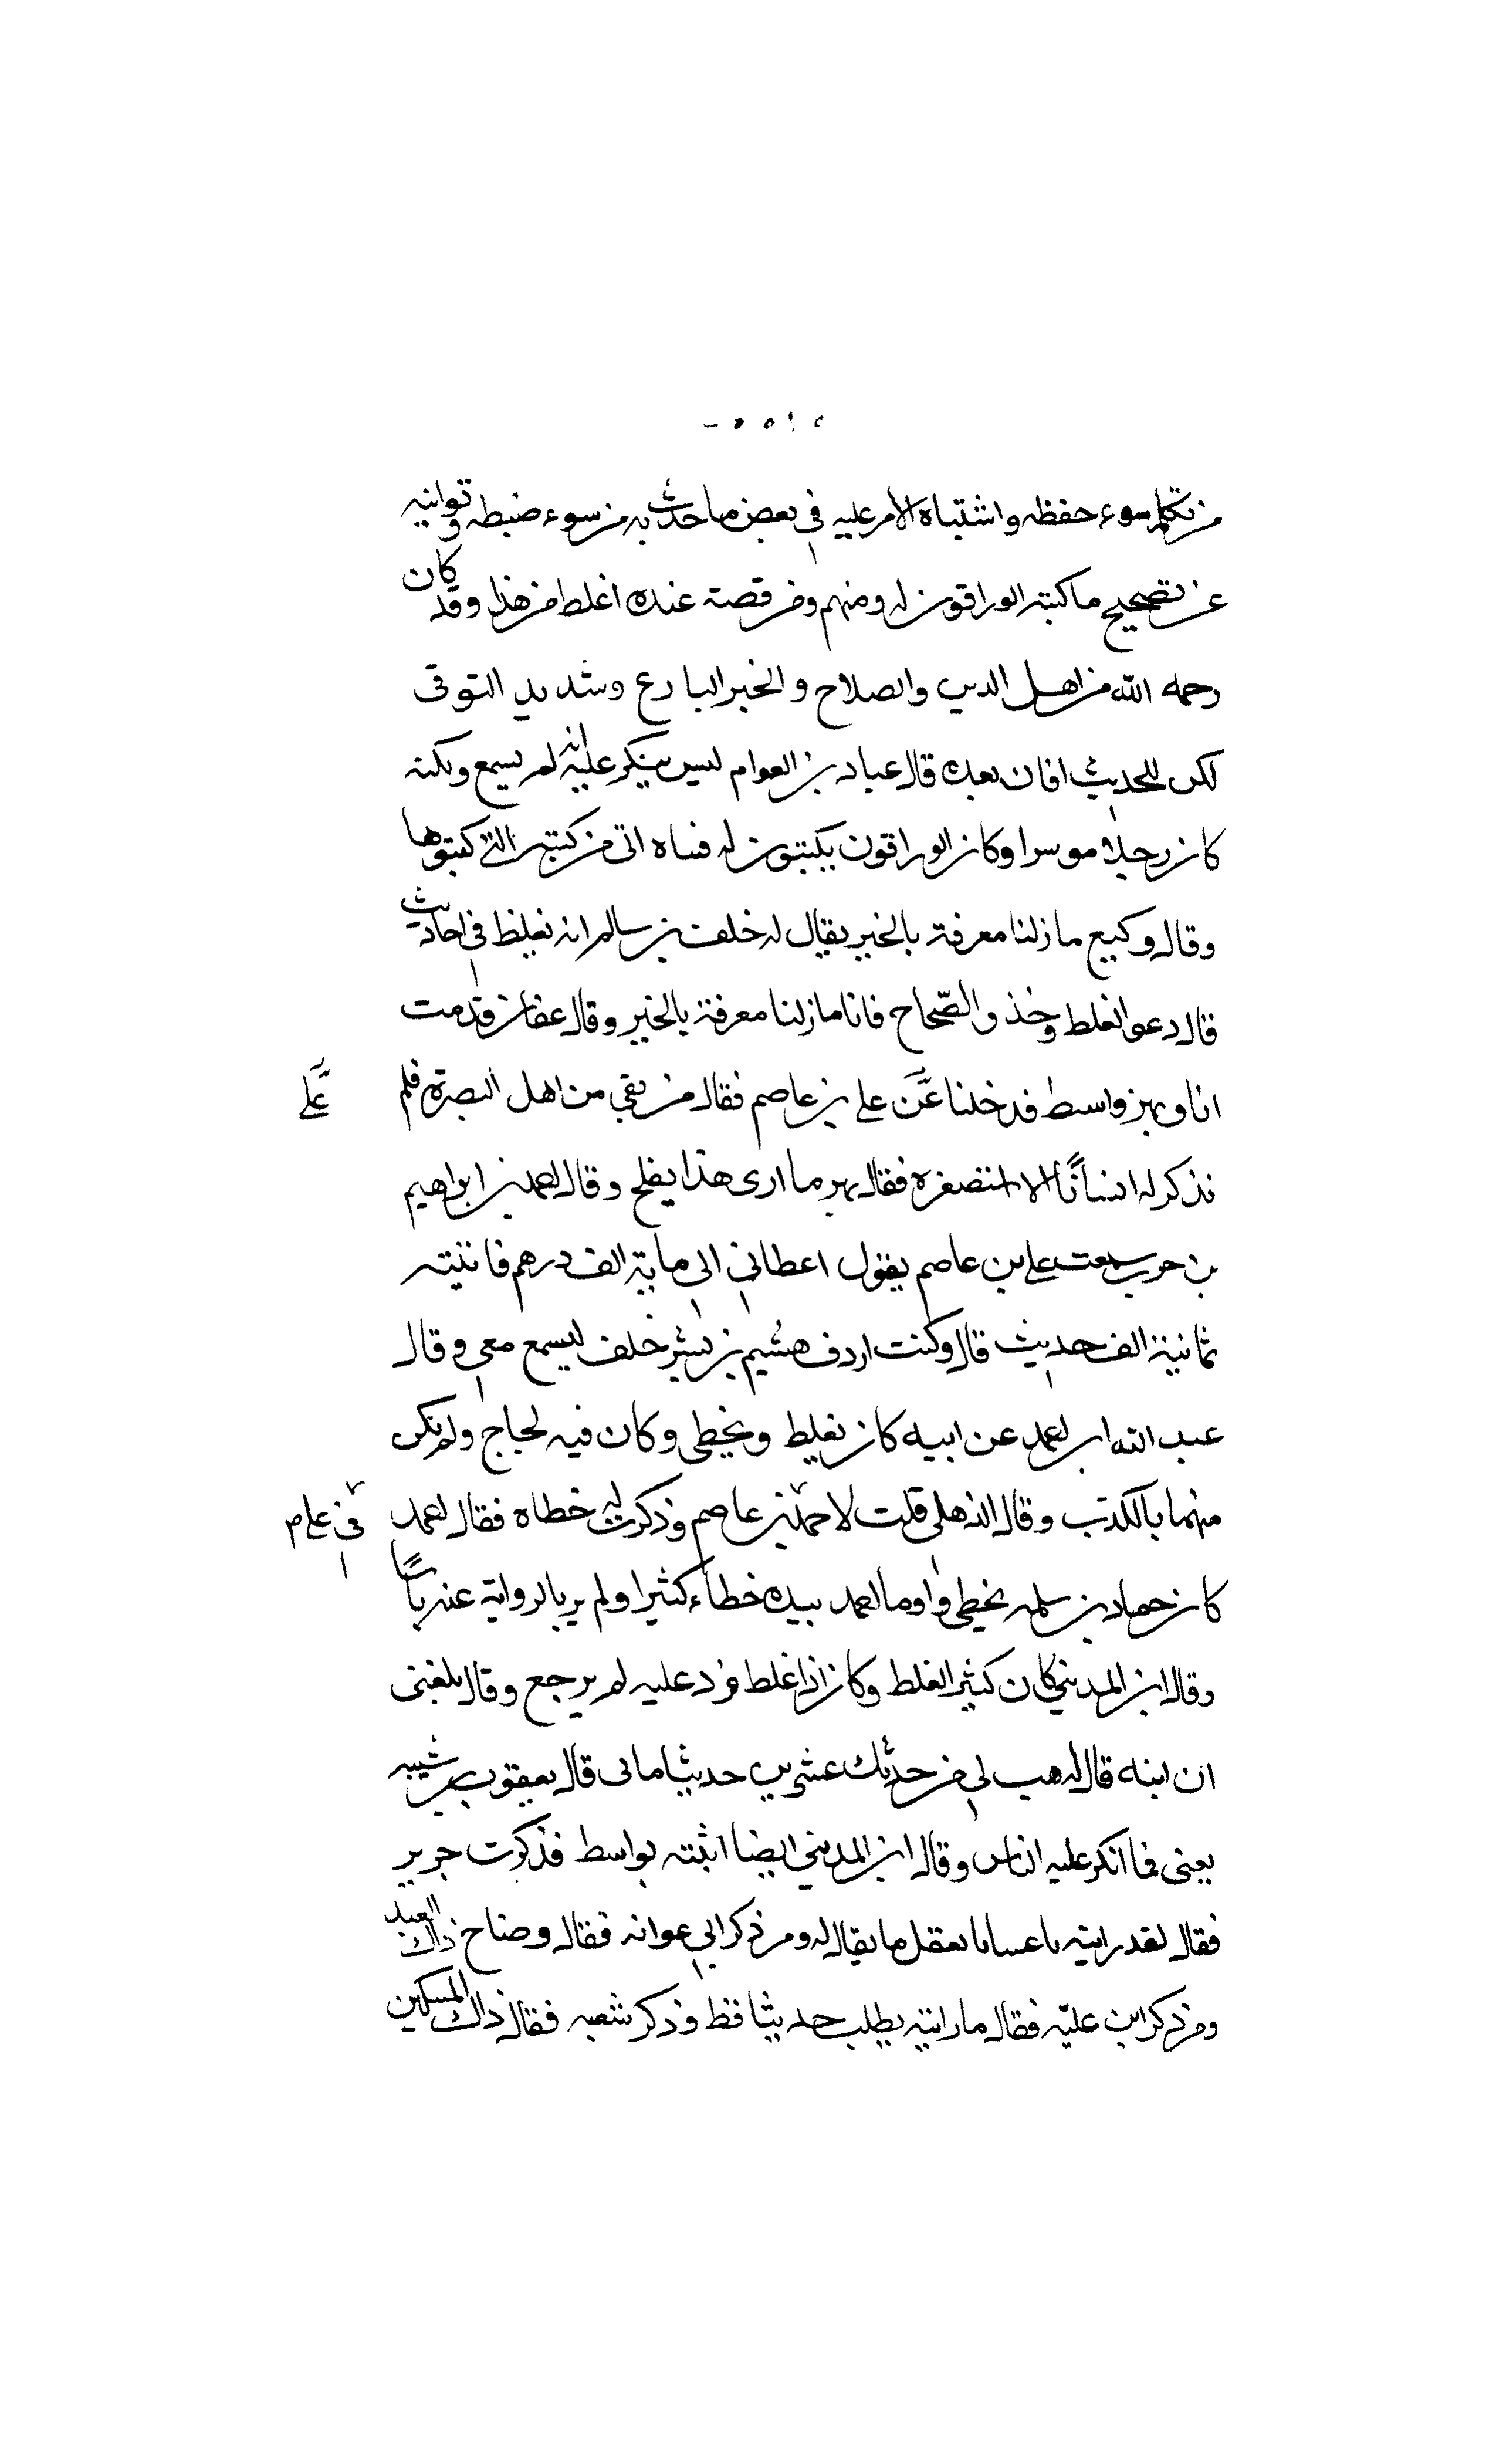 من تكلم سوء حفظه واشتباه الامر عليه في بعض ما حدث به من سوء ضبطه وتوانيه
عن تصحيح ما كتبه الوراقون له ومنهم ومن قصته عنده اغلط من هذا وقد كان
رحمه الله من اهل الدين والصلاح والخير البارع وشديد التوقى
لكن للحديث افات بعده قال عباد بن العوام ليس ينكر عليه انه لم يسمع ولكنه
كان رجلا موسرا وكان الوراقون يكتبون له فنراه اتى من كتبه التي كتبوها
وقال وكيع ما زلنا معرفة بالخير يقال له خلف بن سالم انه يغلط في احاديث
قال دعوا الغلط وخذوا الصحاح فانا ما زلنا معرفة بالخير وقال عفان قدمت
انا وبهز واسط فدخلنا عَن علي بن عاصم فقال من بقي من اهل البصرة فلم
عَلى
فذكر له انسانًا الا استصغره فقال بهز ما ارى هذا يفلح وقال احمد بن ابراهيم
بن حرب سمعت علي بن عاصم يقول اعطاني ابي ماية الف درهم فاتيته
ثمانية الف حديث قال وكنت اردف هشيم بن بشير خلف ليسمع معي وقال
عبد الله ابن احمد عن ابيه كان يغلط ويخطى وكان فيه لجاج ولم يكن
متهما بالكذب وقال الذهلي قلت لاحمد بن عاصم وذكرت له خطاه فقال احمد
في علي م
كان حماد بن سلمه يخطى واوما احمد بيده خطاء كثيرا ولم ير بالرواية عنه باسًا
وقال ابن المديني كان كثير الغلط وكان اذا غلط فرد عليه لم يرجع وقال بلغنى
ان ابنه قال له هب لي من حديثك عشرين حديثا فابى قال يعقوب بن شيبه
يعنى فما انكر عليه الناس وقال ابن المديني ايضا اتيته بواسط فذكرت جرير
فقال لقد رايته ناعسا ما يعقل ما يقال له ومر ذكر ابي عوانه فقال وضاح ذاك العبد
ومر ذكر ابن عليّه فقال ما رايته يطلب حديثا قط وذكر شعبه فقال ذاك المسكين